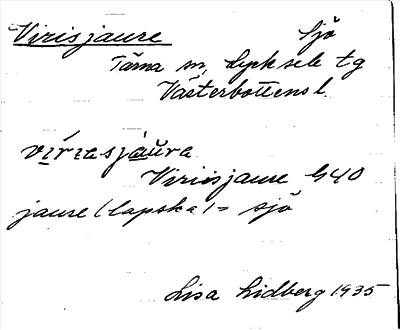 Virisjaure Sjö
Tärna sn, Lycksele tg
Västerbottens l.
vírıesjàu̇ra
Virisjaure G40
jaure (lapska) = sjö
Lisa Lidberg 1935